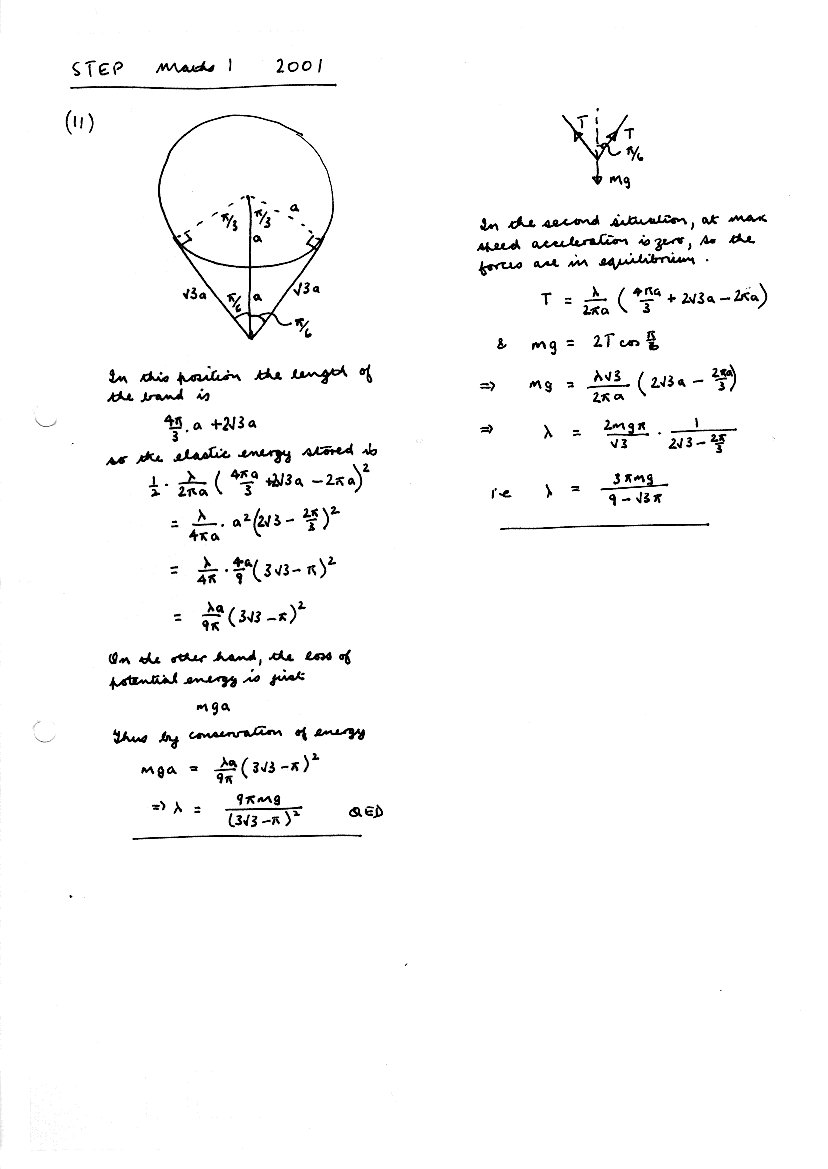 STEP Maths 1 2001
(11)
π/3 π/3 a
a
√3a π/6 a √3a
π/6
In this position the length of
the band is
4π/3 . a + 2√3a
so the elastic energy stored is
1/2 . λ/2πa ( 4πa/3 + 2√3a − 2πa)²
= λ/4πa . a²(2√3 − 2π/3)²
= λ/4π . 4a/9 (3√3 − π)²
= λa/9π (3√3 − π)²
On the other hand, the loss of
potential energy is just
mga
Thus by conservation of energy
mga = λa/9π (3√3 − π)²
⇒ λ = 9πmg/(3√3 − π)² QED
T T
π/6
mg
In the second situation, at max
speed acceleration is zero, so the
forces are in equilibrium.
T = λ/2πa ( 4πa/3 + 2√3a − 2πa)
& mg = 2T cos π/6
⇒ mg = λ√3/2πa (2√3a − 2πa/3)
⇒ λ = 2mgπ/√3 . 1/(2√3 − 2π/3)
i.e λ = 3πmg/(9 − √3π)